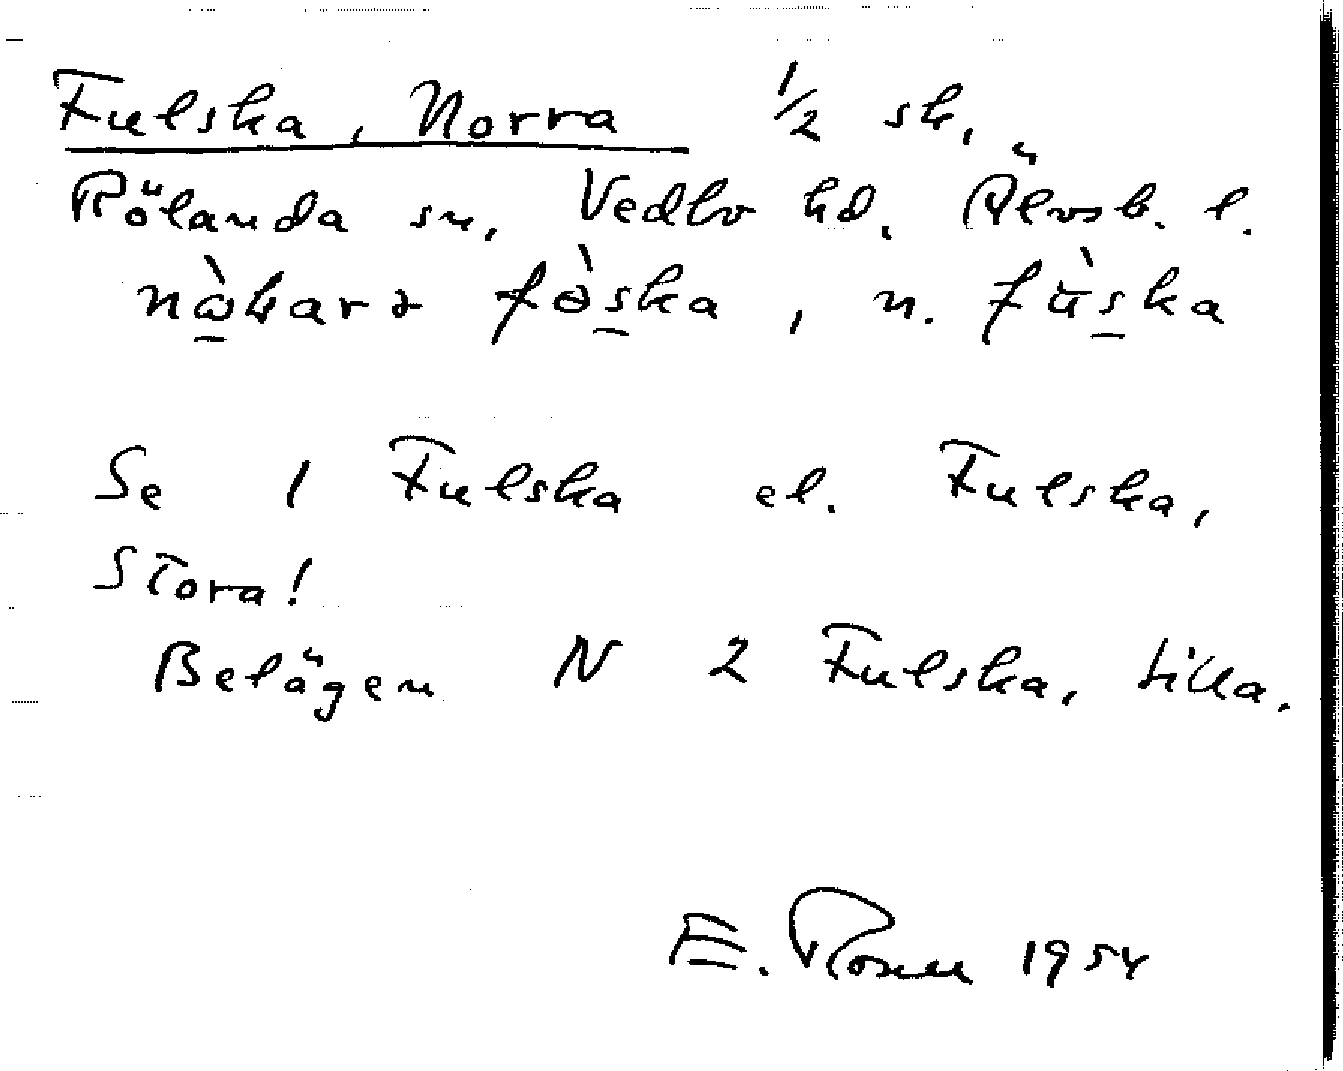 Fulska, Norra 1/2 sk,
Rölanda sn, Vedbo hd, Älvsb. l.
fö̀s̱ka, n. fùs̱ka
Se 1 Fulska el. Fulska,
Stora!
Belägen N 2 Fulska, Lilla.
E. Rosell 1954